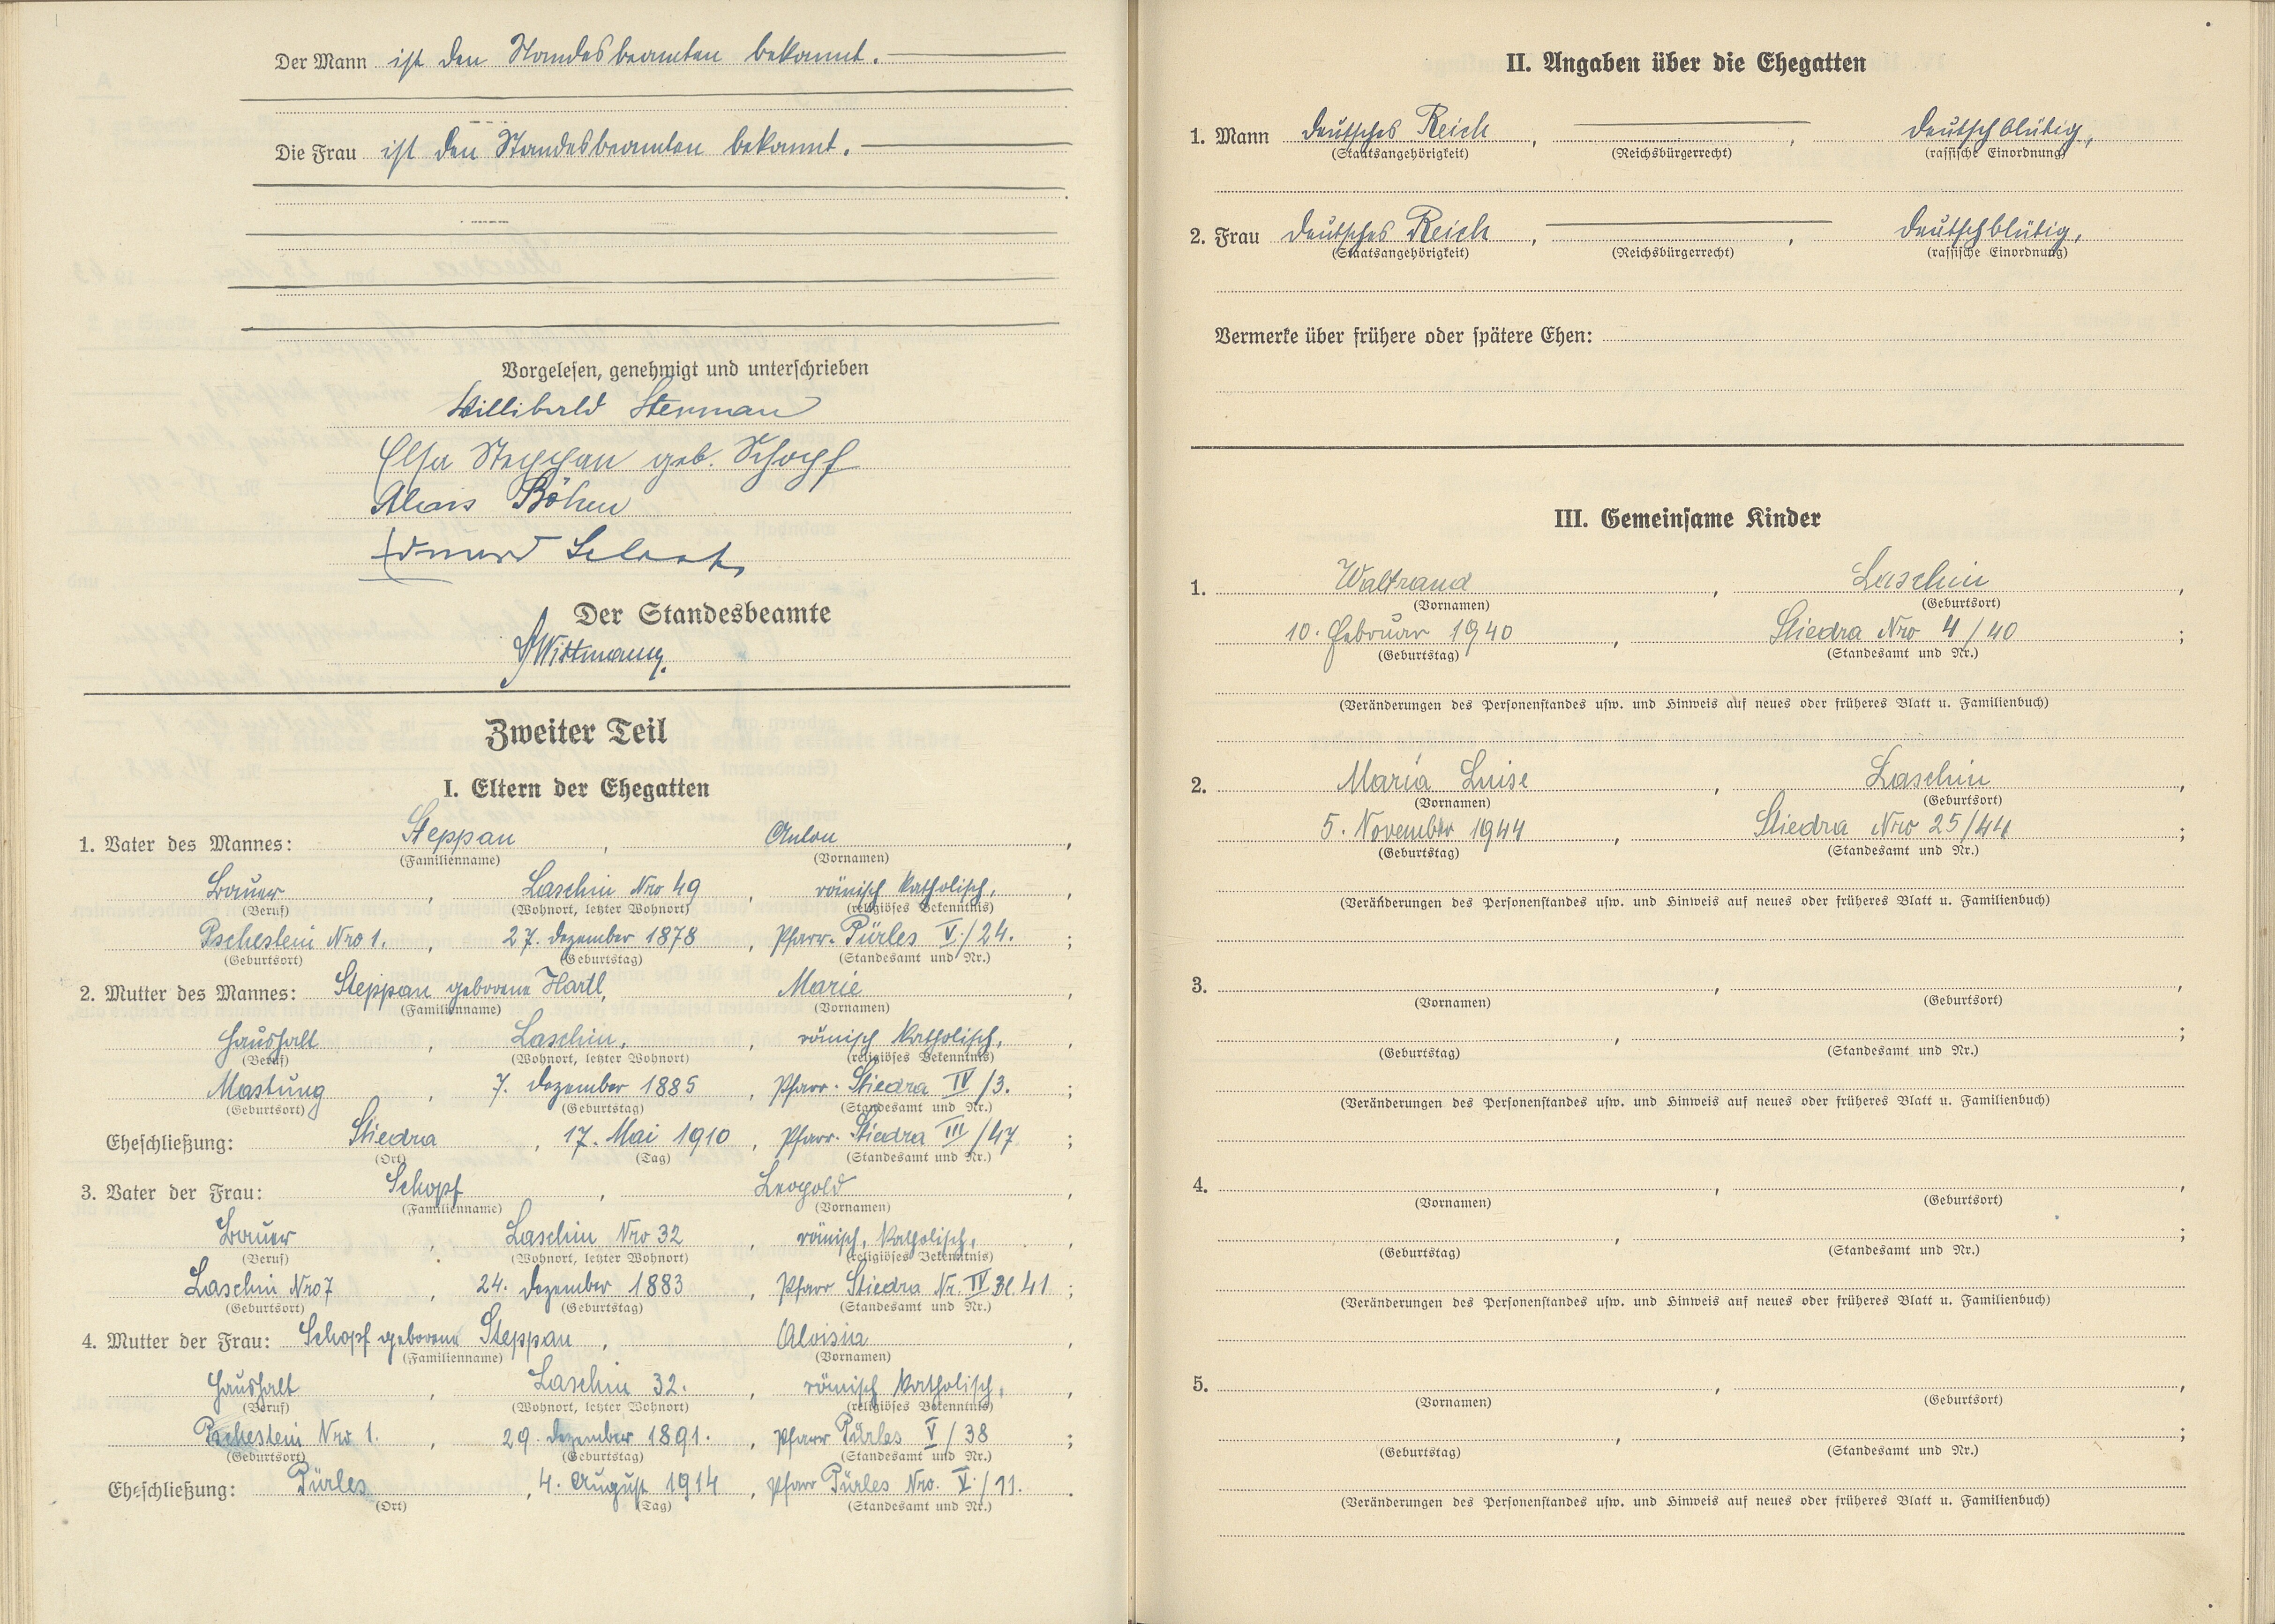 Der Mann ist den Standesbeamten bekannt.
Die Frau ist den Standesbeamten bekannt.
Vorgelesen, genehmigt und unterschrieben
Willibald
Elsa Steppan geb. Schopf
Alois Böhm
Der Standesbeamte
Wittmann
Zweiter Teil
I. Eltern der Ehegatten
1. Vater des Mannes: Steppan, Anton,
(Familienname) (Vornamen)
Bauer, Laschin Nro 49, römisch katholisch,
(Beruf) (Wohnort, letzter Wohnort) (religiöses Bekenntnis)
Pschestein Nro 1., 27. Dezember 1878, Pfarr. Pürles V./24.;
(Geburtsort) (Geburtstag) (Standesamt und Nr.)
2. Mutter des Mannes: Steppan geborene Hartl, Marie,
(Familienname) (Vornamen)
Haushalt, Laschin, römisch katholisch,
(Beruf) (Wohnort, letzter Wohnort) (religiöses Bekenntnis)
Mastung, 7. Dezember 1885, Pfarr. Stiedra IV/3.;
(Geburtsort) (Geburtstag) (Standesamt und Nr.)
Eheschließung: Stiedra, 17. Mai 1910, Pfarr. Stiedra III/47;
(Ort) (Tag) (Standesamt und Nr.)
3. Vater der Frau: Schopf, Leopold,
(Familienname) (Vornamen)
Bauer, Laschin Nro 32, römisch, katholisch,
(Beruf) (Wohnort, letzter Wohnort) (religiöses Bekenntnis)
Laschin Nro 7, 24. Dezember 1883, Pfarr Stiedra Nr. IV Bl. 41;
(Geburtsort) (Geburtstag) (Standesamt und Nr.)
4. Mutter der Frau: Schopf geborene Steppan, Aloisia,
(Familienname) (Vornamen)
Haushalt, Laschin 32., römisch katholisch,
(Beruf) (Wohnort, letzter Wohnort) (religiöses Bekenntnis)
Pschestein Nro 1., 29. Dezember 1891., Pfarr Pürles V/38;
(Geburtsort) (Geburtstag) (Standesamt und Nr.)
Eheschließung: Pürles, 4. August 1914, Pfarr Pürles Nro. V./11.
(Ort) (Tag) (Standesamt und Nr.)
II. Angaben über die Ehegatten
1. Mann Deutsches Reich, , Deutschblütig,
(Staatsangehörigkeit) (Reichsbürgerrecht) (rassische Einordnung)
2. Frau Deutsches Reich, , Deutschblütig,
(Staatsangehörigkeit) (Reichsbürgerrecht) (rassische Einordnung)
Vermerke über frühere oder spätere Ehen:
III. Gemeinsame Kinder
1. Waltraud, Laschin,
(Vornamen) (Geburtsort)
10. Februar 1940, Stiedra Nro 4/40;
(Geburtstag) (Standesamt und Nr.)
(Veränderungen des Personenstandes usw. und Hinweis auf neues oder früheres Blatt u. Familienbuch)
2. Maria Luise, Laschin,
(Vornamen) (Geburtsort)
5. November 1944, Stiedra Nro 25/44;
(Geburtstag) (Standesamt und Nr.)
(Veränderungen des Personenstandes usw. und Hinweis auf neues oder früheres Blatt u. Familienbuch)
3. , ,
(Vornamen) (Geburtsort)
, ;
(Geburtstag) (Standesamt und Nr.)
(Veränderungen des Personenstandes usw. und Hinweis auf neues oder früheres Blatt u. Familienbuch)
4. , ,
(Vornamen) (Geburtsort)
, ;
(Geburtstag) (Standesamt und Nr.)
(Veränderungen des Personenstandes usw. und Hinweis auf neues oder früheres Blatt u. Familienbuch)
5. , ,
(Vornamen) (Geburtsort)
, ;
(Geburtstag) (Standesamt und Nr.)
(Veränderungen des Personenstandes usw. und Hinweis auf neues oder früheres Blatt u. Familienbuch)